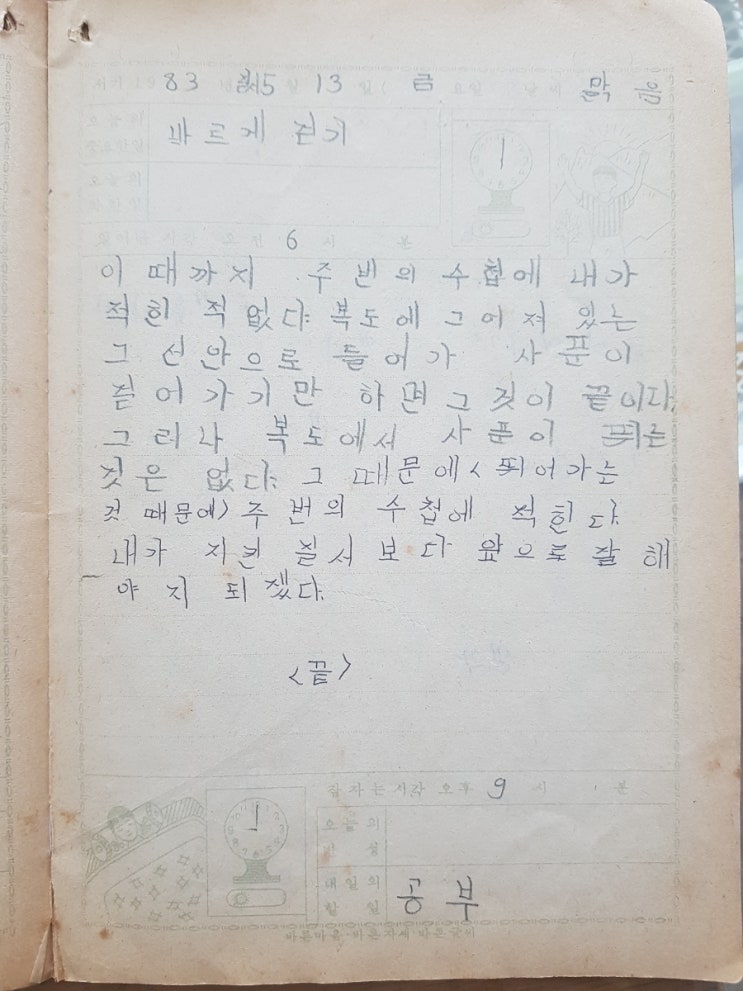 서기 19 83 년 5 월 13 일 ( 금 요일 날씨 맑음
오늘의 중요한일 바르게 걷기
오늘의
일어난 시각 오전 6 시 분
이 때까지 주번의 수첩에 내가
적힌 적 없다. 복도에 그어져 있는
그 선안으로 들어가 사푼이
걸어가기만 하면 그것이 끝이다.
그러나 복도에서 사푼이 뛰는
것은 없다. 그 때문에 <뛰어가는
것 때문에> 주번의 수첩에 적힌다.
내가 지킨 질서보다 앞으로 잘 해
야지 되겠다.
<끝>
잠자는 시각 오후 9 시 분
오늘의 반성
내일의 할일 공부
바른마음·바른자세·바른글씨